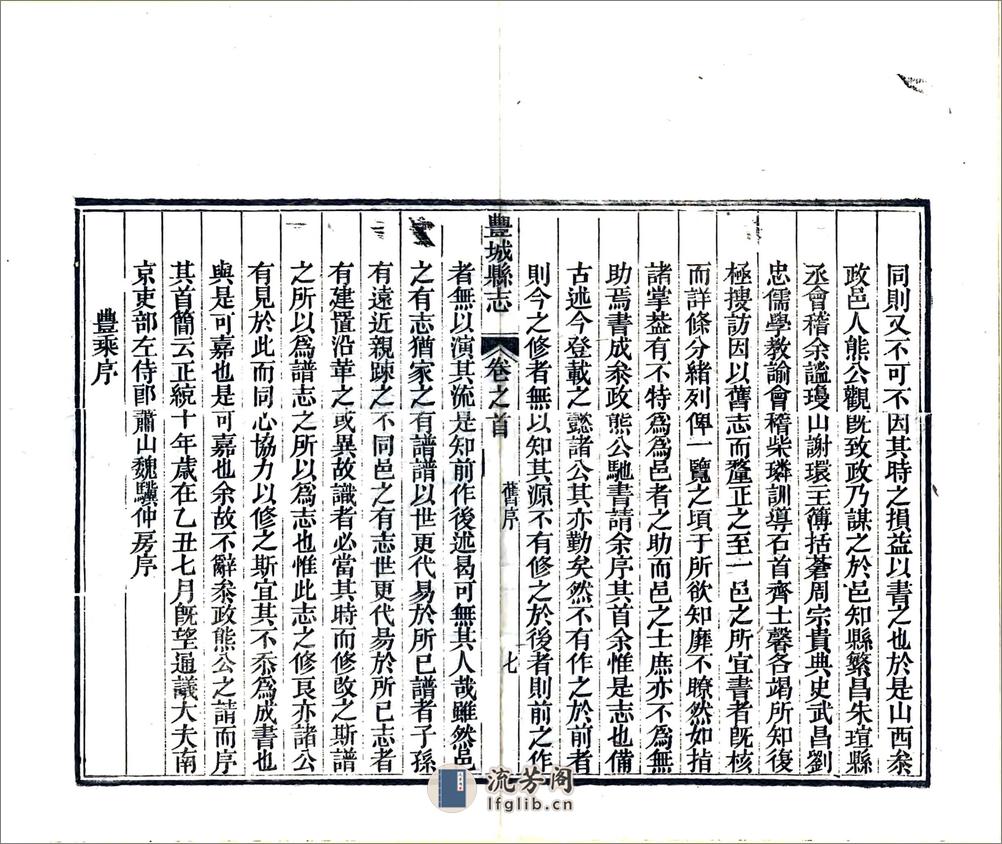 同則又不可不因其時之損益以書之也於是山西叅
政邑人熊公觀旣致政乃謀之於邑知縣繁昌朱瑄縣
丞會稽余謐璦山謝環王簿括蒼周宗貴典史武昌劉
忠儒學敎諭會稽柴璘訓導石首齊士馨各竭所知後
極搜訪因以舊志而釐正之至一邑之所宜書者旣核
而詳條分緒列俾一覽之頃于所欲知靡不瞭然如指
諸掌葢有不特爲爲邑者之助而邑之士庶亦不爲無
助焉書成叅政熊公馳書請余序其首余惟是志也備
古述今登載之懿諸公其亦勤矣然不有作之於前者
則今之修者無以知其源不有修之於後者則前之作
豐城縣志 卷之首 舊序 七
者無以演其流是知前作後述曷可無其人哉雖然邑
之有志猶家之有譜譜以世更代易於所已譜者子孫
有遠近親踈之不同邑之有志世更代易於所已志者
有建置沿革之或異故識者必當其時而修改之斯譜
之所以爲譜志之所以爲志也惟此志之修良亦諸公
有見於此而同心協力以修之斯宜其不忝爲成書也
與是可嘉也是可嘉也余故不辭叅政熊公之請而序
其首簡云正統十年歲在乙丑七月旣望通議大夫南
京吏部左侍郎蕭山魏驥仲房序
豐乘序
流芳阁
lfglib.cn